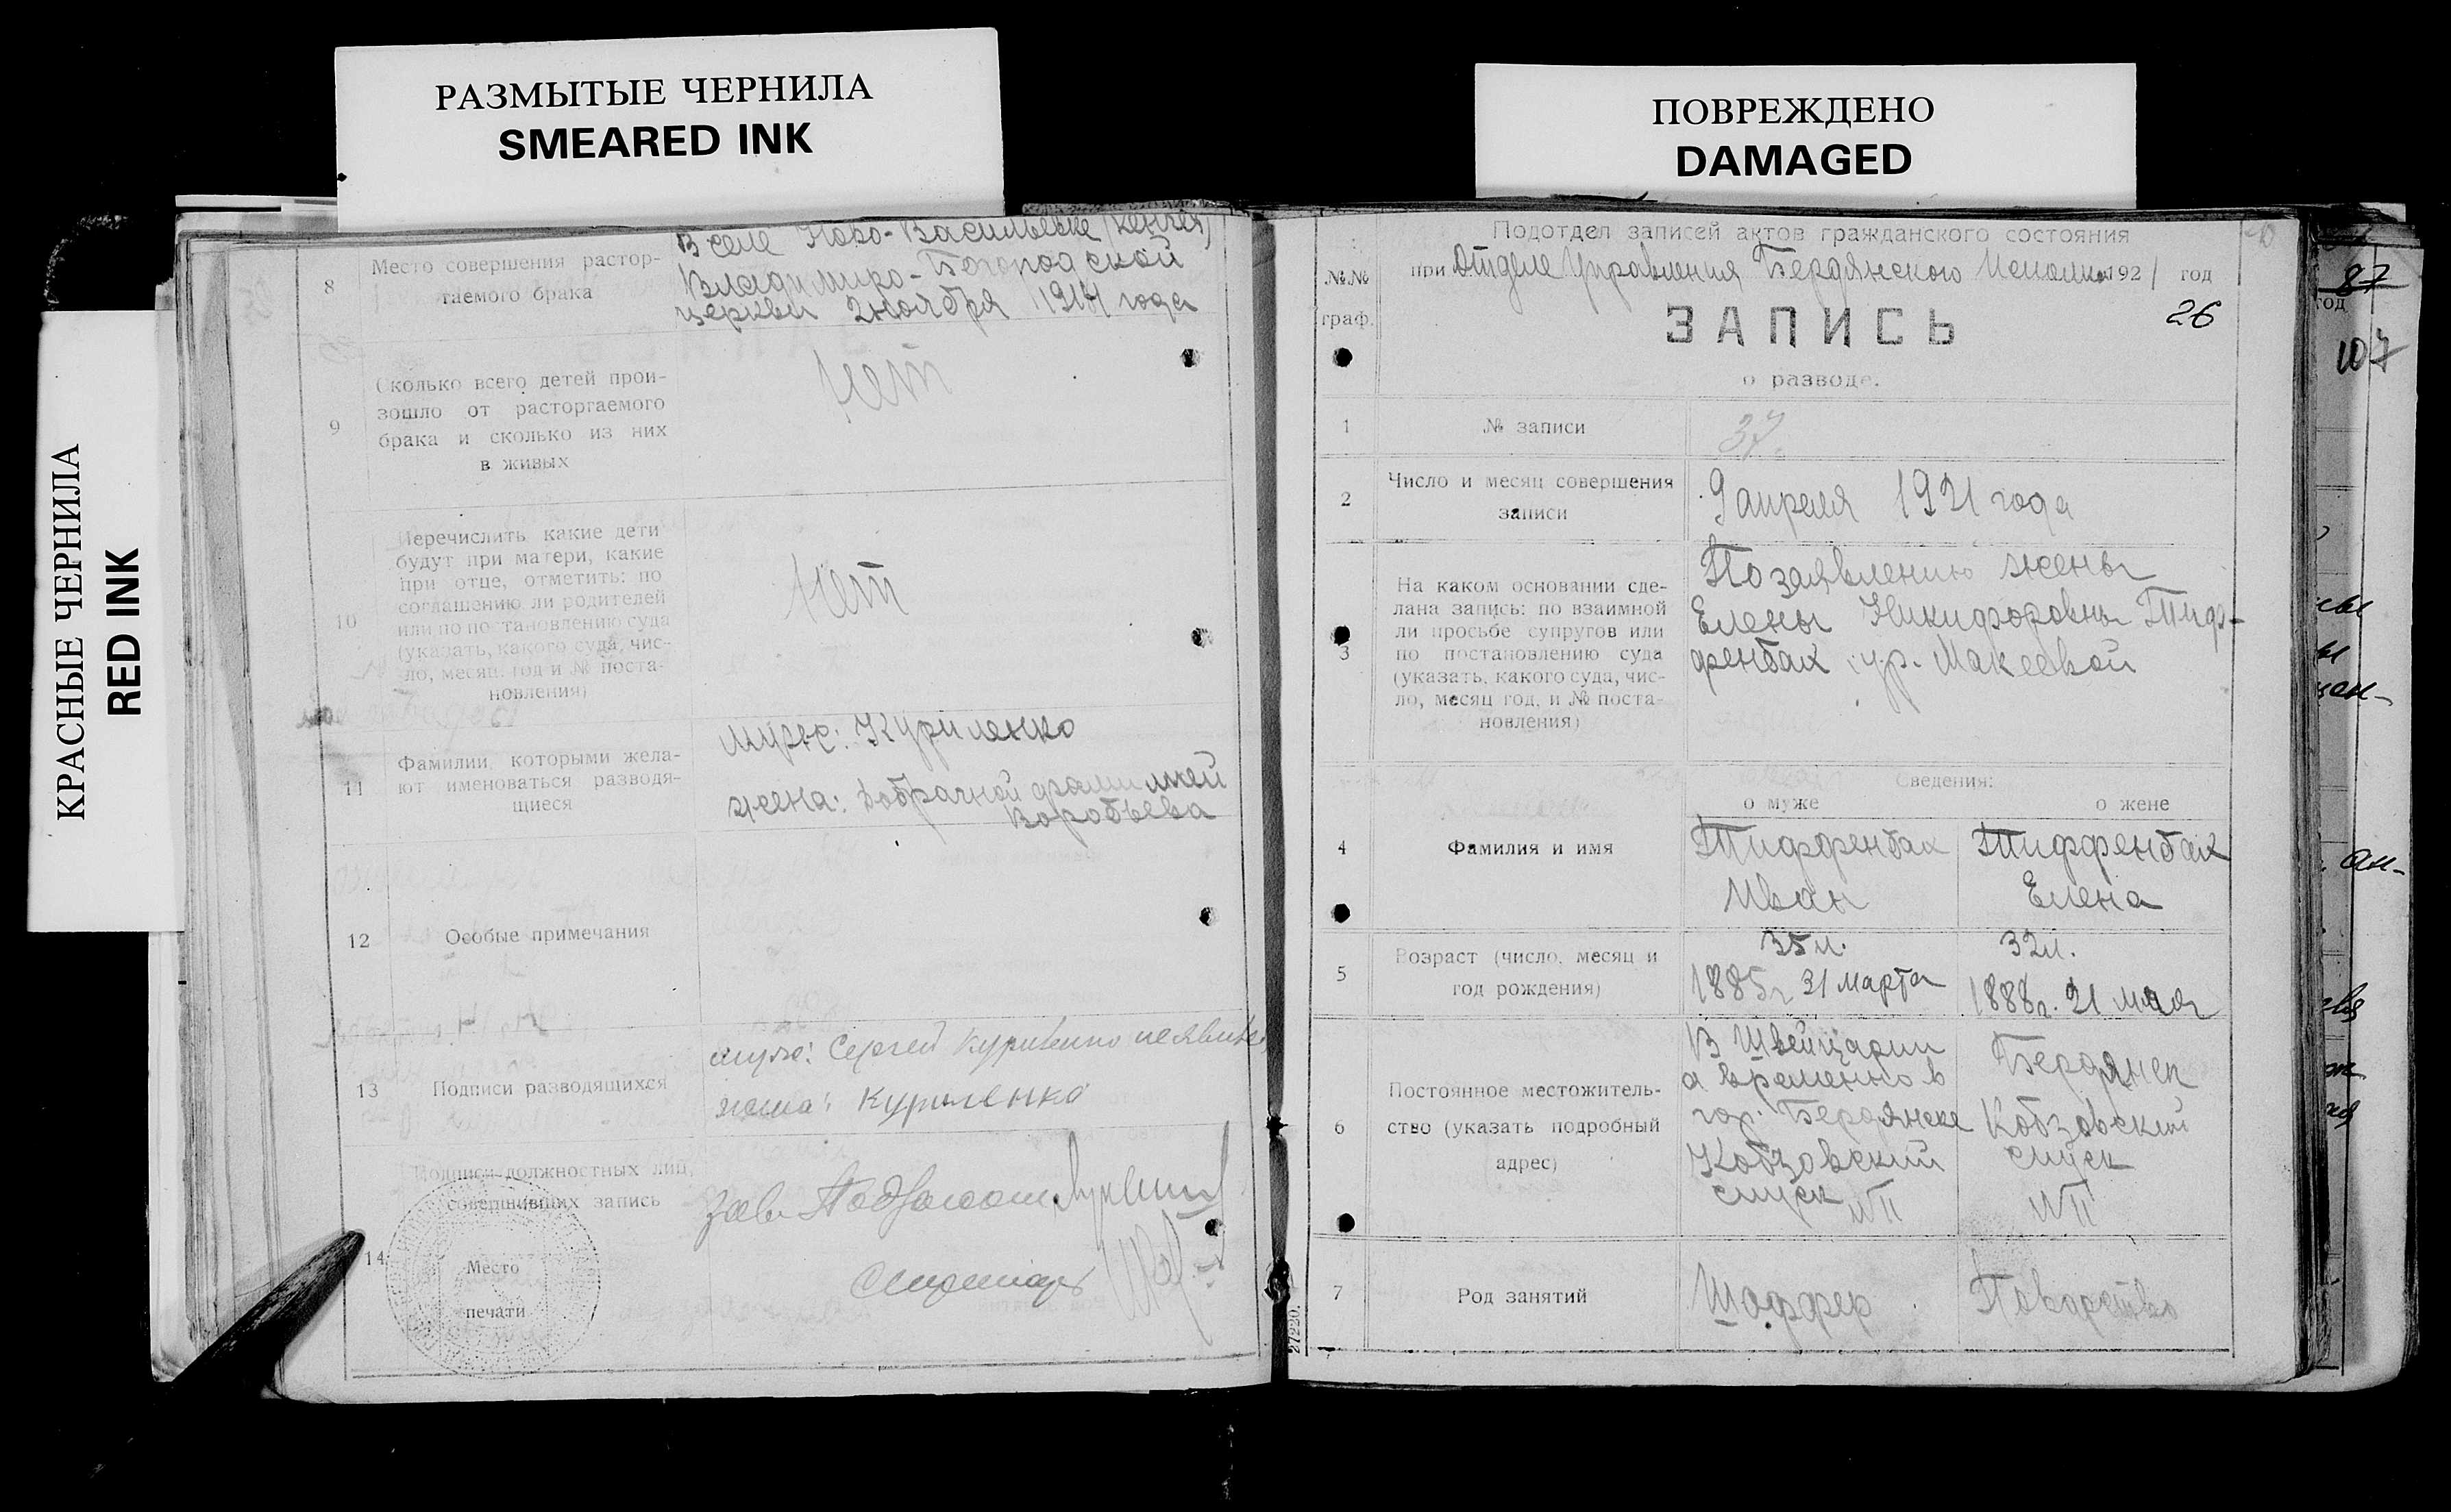 РАЗМЫТЫЕ ЧЕРНИЛА
SMEARED INK
ПОВРЕЖДЕНО
DAMAGED
КРАСНЫЕ ЧЕРНИЛА
RED INK
8
Место совершения растор-
гаемого брака
В селе Ново-Васильевке
Владимиро-Богородской
церкви 2 ноября 1914 года
9
Сколько всего детей прои-
зошло от расторгаемого
брака и сколько из них
в живых
Нет
10
Перечислить какие дети
будут при матери, какие
при отце, отметить: по
соглашению ли родителей
или по постановлению суда
(указать, какого суда, чис-
ло, месяц, год и № поста-
новления)
Нет
11
Фамилии, которыми жела-
ют именоваться разводя-
щиеся
муж: Куриленко
жена: добрачной фамилией
Воробьева
12
Особые примечания
13
Подписи разводящихся
муж: Сергей Куриленко не явился
жена: Куриленко
14
Подписи должностных лиц,
совершивших запись
Место
печати
Зав.
27220.
Подотдел записей актов гражданского состояния
№№
граф.
при Отделе Управления Бердянского Исполкома 1921 год
26
ЗАПИСЬ
о разводе.
1
№ записи
37.
2
Число и месяц совершения
записи
9 апреля 1921 года
3
На каком основании сде-
лана запись: по взаимной
ли просьбе супругов или
по постановлению суда
(указать, какого суда, чис-
ло, месяц год, и № поста-
новления)
По заявлению жены
Елены Никифоровны Тиф-
фенбах ур. Макеевой
Сведения:
о муже
о жене
4
Фамилия и имя
Тиффенбах
Иван
Тиффенбах
Елена
5
Возраст (число, месяц и
год рождения)
35 л.
1885 г. 31 марта
32 л.
1888 г. 21 мая
6
Постоянное местожитель-
ство (указать подробный
адрес)
В Швейцарии
а временно в
гор. Бердянске
Кобзовский
спуск № 11
Бердянск
Кобзовский
спуск
№ 11
7
Род занятий
Шоффер
Поварство
87
год
107